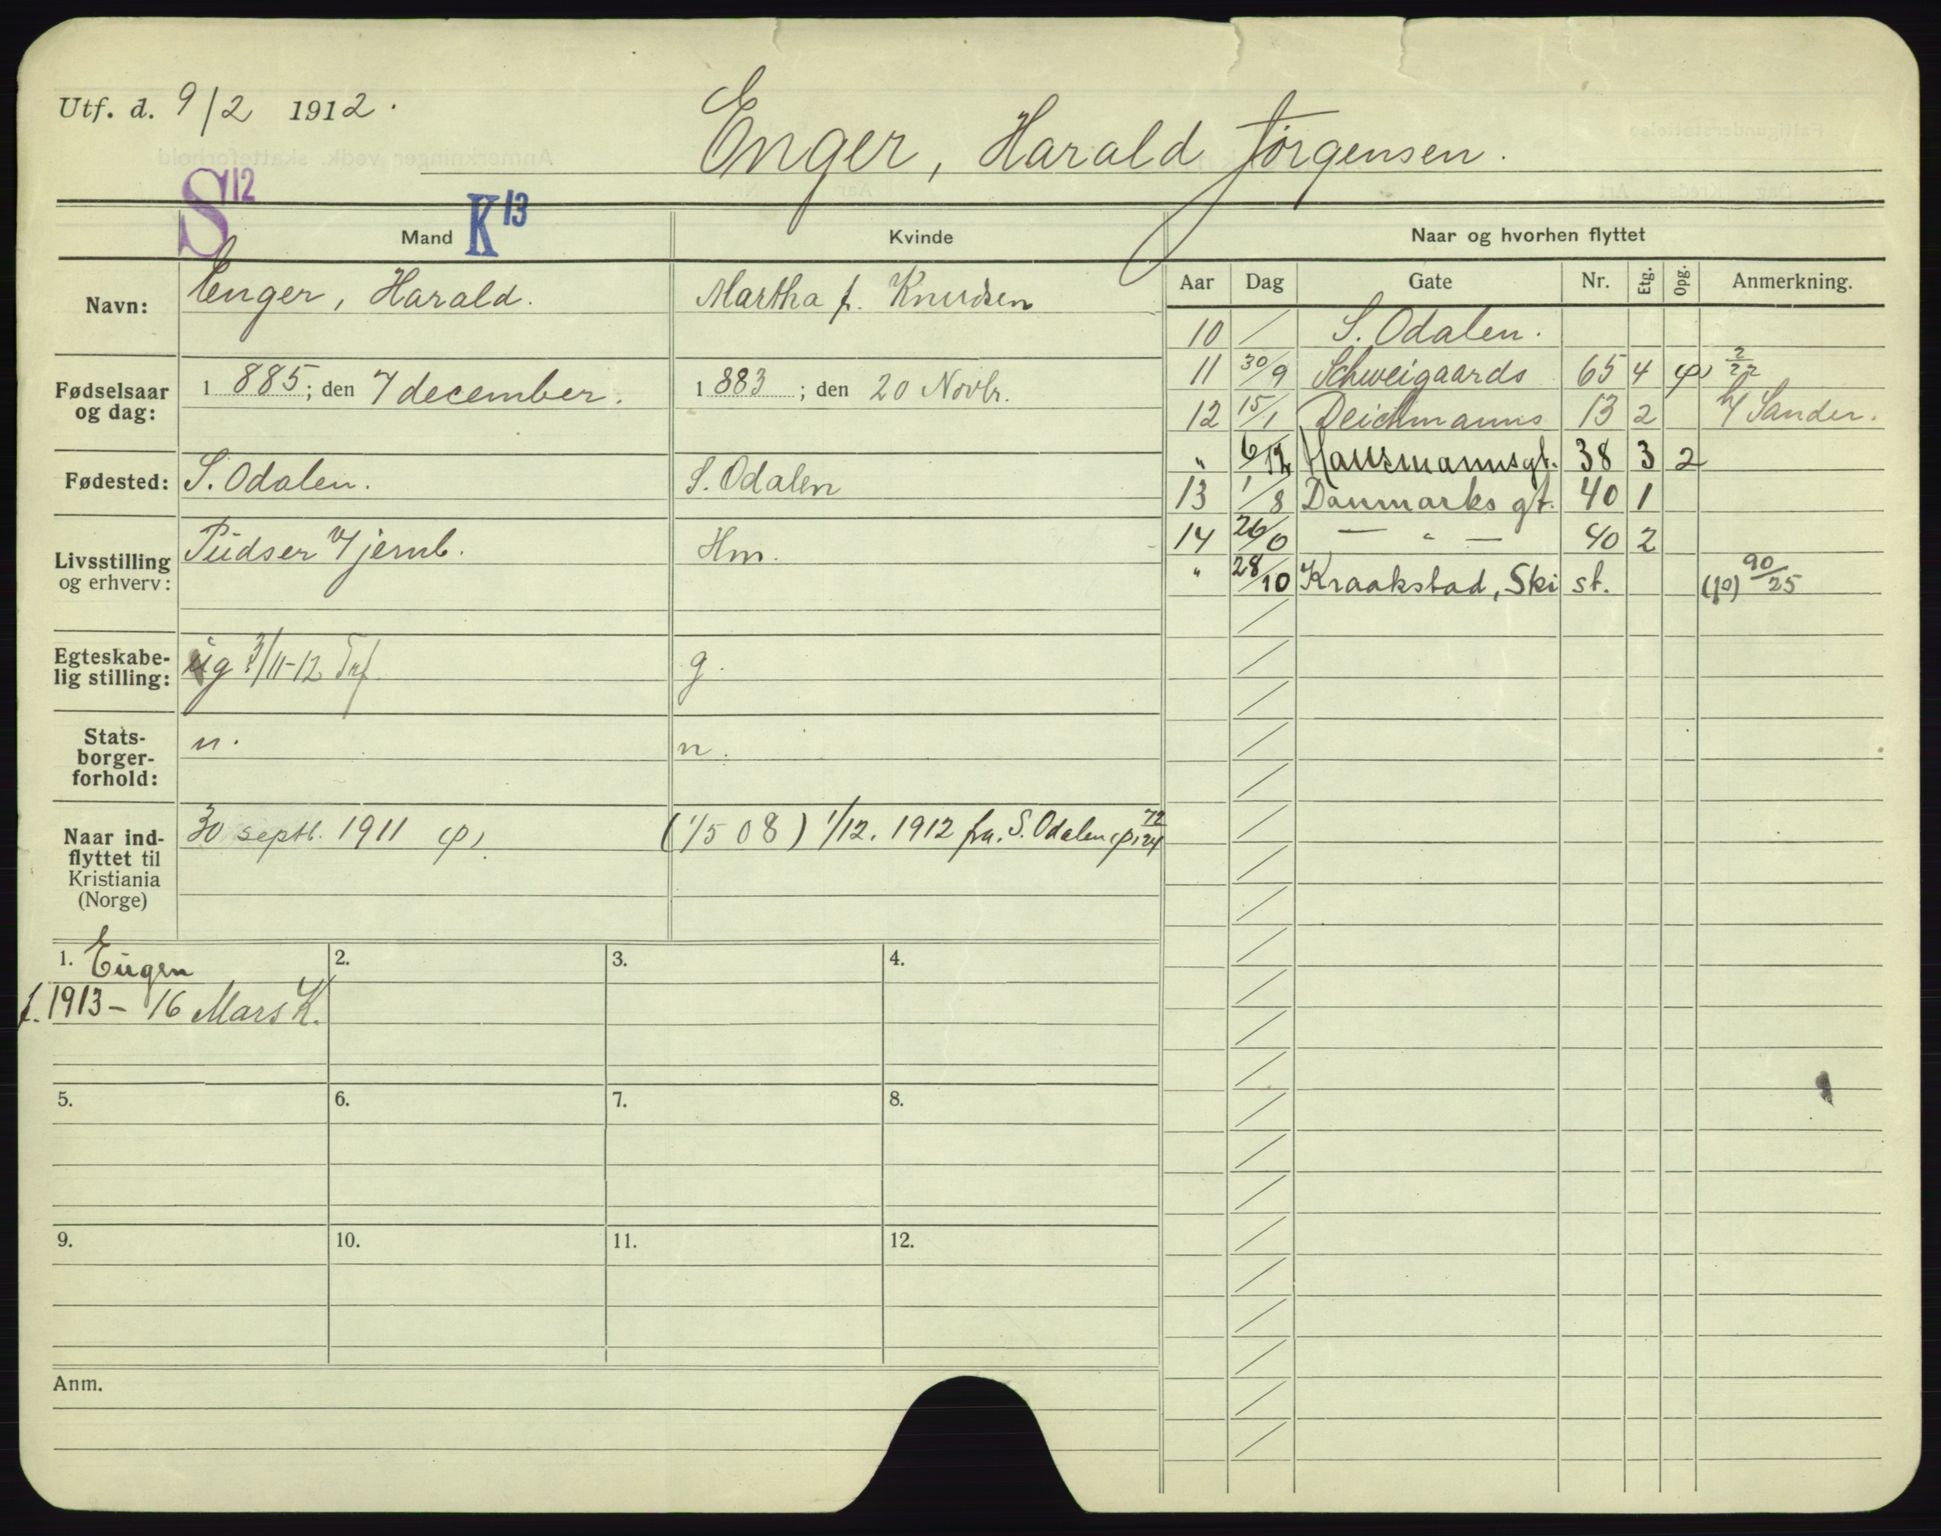 Utf. d. 9/2 1912.
Enger, Harald Jörgensen.
S 12
K 13
Mand
Kvinde
Navn:
Enger, Harald.
Martha f. Knudsen
Fødselsaar og dag:
1885; den 7 december.
1883; den 20 Novbr.
Fødested:
S. Odalen.
S. Odalen
Livsstilling og erhverv:
Pudser v/ jernb.
Hm.
Egteskabelig stilling:
g 3/11-12
g.
Statsborgerforhold:
n.
n.
Naar indflyttet til Kristiania (Norge)
30 septb. 1911 (p)
(1/5 08) 1/12. 1912 fra. S. Odalen (p) 72/24
1. Eugen
f. 1913 - 16 Mars K.
2.
3.
4.
5.
6.
7.
8.
9.
10.
11.
12.
Anm.
Naar og hvorhen flyttet
Aar Dag Gate Nr. Etg. Opg. Anmerkning.
10 / S. Odalen.
11 30/9 Schweigaards 65 4 (p) 2/22
12 15/1 Deichmanns 13 2 v/ Sander.
" 6/12 Hausmannsgt. 38 3 2
13 1/8 Danmarks gt. 40 1
14 — " — 40 2
" 28/10 Kraakstad, Ski st. (p) 90/25